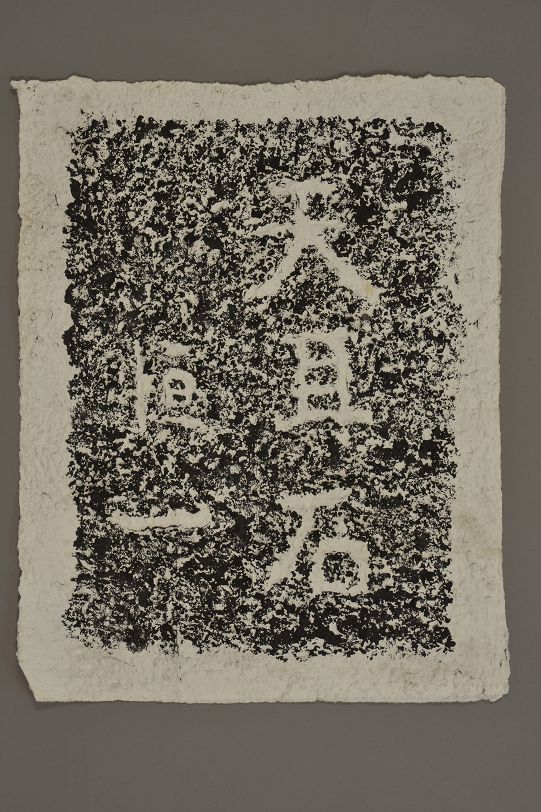 天且石
恒一